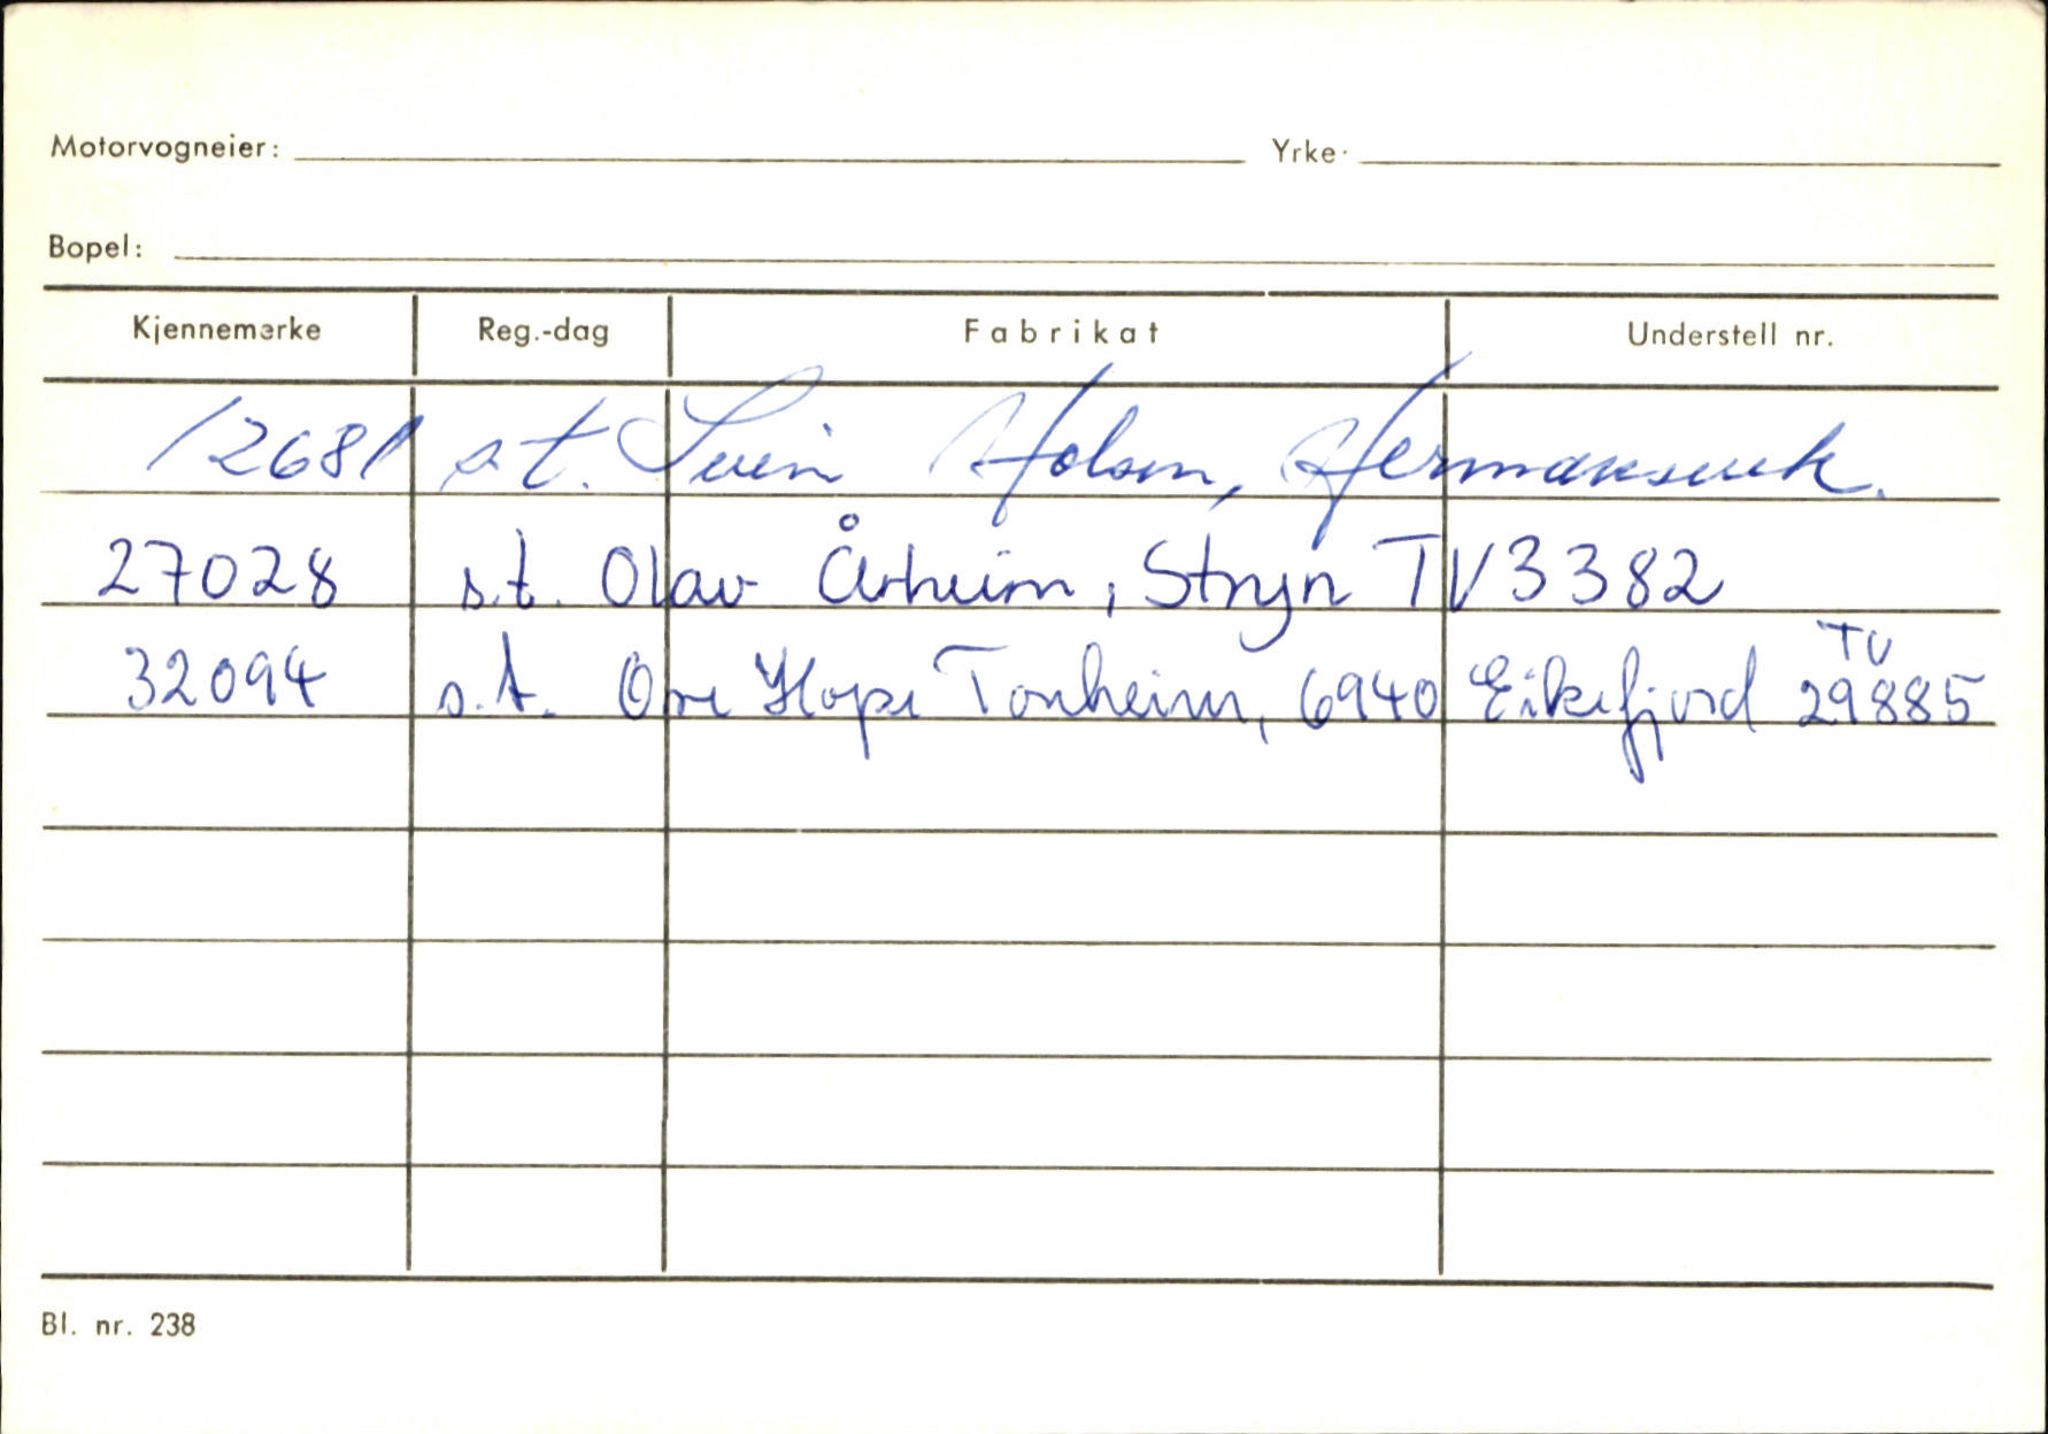 Motorvogneier: Yrke.
Bopel:
Kjennemerke Reg.-dag Fabrikat Understell nr.
12681 s.t. Svein Holsen, Hermansverk.
27028 s.t. Olav Årheim, Stryn TV3382
32094 s.t. Ove Hope Tonheim, 6940 Eikefjord TV 29885
Bl. nr. 238